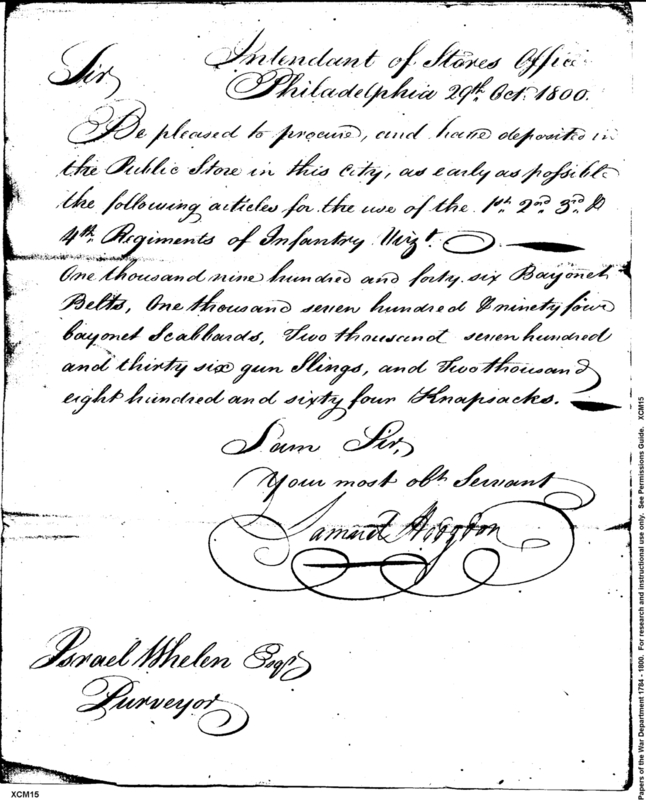 Intendant of Stores Office
Sir,
Philadelphia 29th. Oct. 1800.
Be pleased to procure, and have deposited in
the Public Store in this City, as early as possible
the following articles for the use of the 1st. 2nd. 3rd. &
4th. Regiments of Infantry Vizt.
One thousand nine hundred and forty six Bayonet
Belts, One thousand seven hundred & ninety four
bayonet Scabbards, Two thousand seven hundred
and thirty six gun Slings, and Two thousand
eight hundred and sixty four Knapsacks.
I am Sir,
Your most obt. Servant
Samuel Hodgdon
Israel Whelen Esqr.
Purveyor
XCM15
Papers of the War Department 1784 - 1800. For research and instructional use only. See Permissions Guide. XCM15